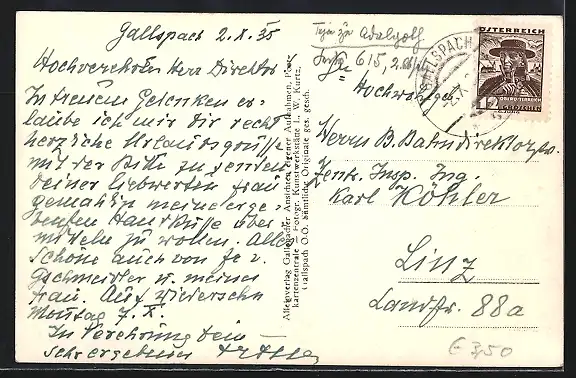 Gallspach 2. X. 35
Hochverehrter Herr Direktor
In treuem Gedenken er-
laube ich mir Dir recht
herzliche Urlaubsgrüße
mit der Bitte zu senden
Deiner liebwerten Frau
gemahlin meine erge-
bensten Handküsse über
mitteln zu wollen. Alles
Schöne auch von Fr v.
Gschmeidler u. meiner
Frau. Auf Wiedersehn
Montag 7. X.
In Verehrung Dein
sehr ergebener
Alleinverlag Gallspacher Ansichten eigener Aufnahmen, Post-
kartenzentrale - Fotogr. Kunstwerkstätte L. W. Kurtz,
Gallspach O.Ö. Sämtliche Originale ges. gesch.
615,
Hochwohlgeb.
GALLSPACH
ÖSTERREICH
12
OBERÖSTERREICH
GROSCHEN
Herrn B. Bahndirektorstv.
Zentr. Insp. Ing.
Karl Köhler
Linz
Landstr. 88a
€ 3,50